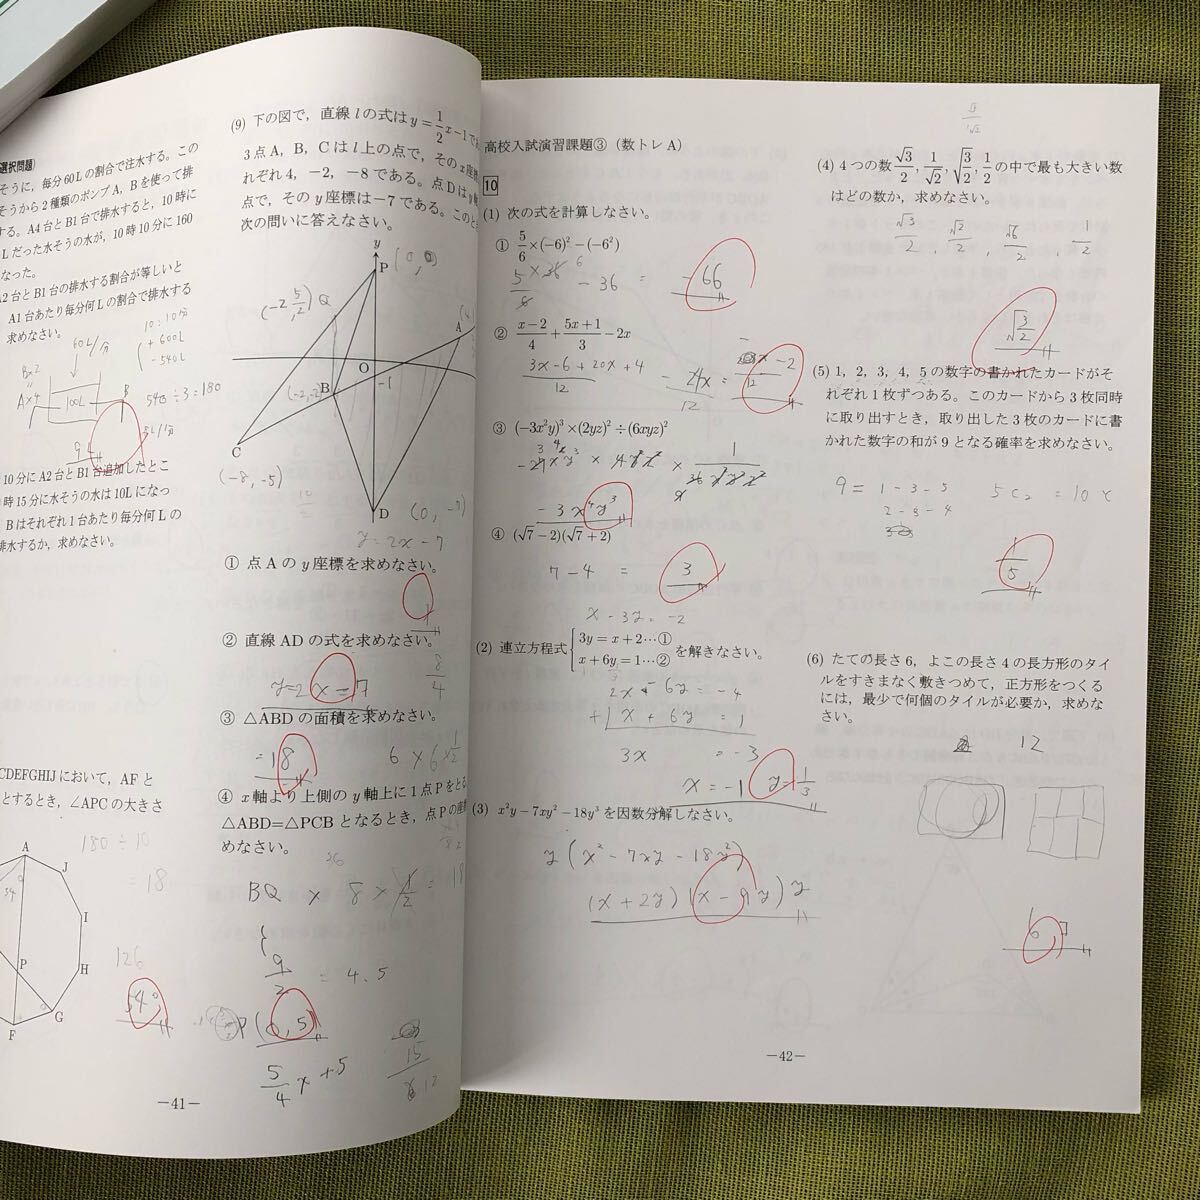 選択問題)
そうに，毎分60Lの割合で注水する。この
そうから2種類のポンプA，Bを使って排
する。A4台とB1台で排水すると，10時に
Lだった水そうの水が，10時10分に160
なった。
A2台とB1台の排水する割合が等しいと
A1台あたり毎分何Lの割合で排水する
求めなさい。
10:10分
60L/分
+600L
-540L
100L
540÷3=180
9L
10分にA2台とB1台追加したとこ
時15分に水そうの水は10Lになっ
Bはそれぞれ1台あたり毎分何Lの
排水するか，求めなさい。
CDEFGHIJにおいて，AFと
とするとき，∠APCの大きさ
180÷10
=18
A
J
I
H
P
G
F
126
54°
(9) 下の図で，直線lの式はy=1/2x-1で
3点A，B，Cはl上の点で，そのx座標
れぞれ4，-2，-8である。点Dはy軸
点で，そのy座標は-7である。このとき
次の問いに答えなさい。
y
P
Q
A
O
-1
B
(-2,-2)
C
(-8,-5)
D
(0,-7)
y=2x-7
① 点Aのy座標を求めなさい。
1
② 直線ADの式を求めなさい。
8/4
y=2x-7
③ △ABDの面積を求めなさい。
=18
6×6×1/2
④ x軸より上側のy軸上に1点Pをとる
△ABD=△PCBとなるとき，点Pの座標
めなさい。
36
BQ×8×1/2=18
9/2=4.5
P(0,5)
5/4x+5
-41-
高校入試演習課題③（数トレA）
10
(1) 次の式を計算しなさい。
① 5/6×(-6)²-(-6²)
-36=-66
② (x-2)/4+(5x+1)/3-2x
(3x-6+20x+4)/12
③ (-3x²y)³×(2yz)²÷(6xyz)²
-3x⁴y³
④ (√7-2)(√7+2)
7-4=3
x-3y=-2
(2) 連立方程式{3y=x+2…① x+6y=1…②を解きなさい。
2x-6y=-4
+)x+6y=1
3x=-3
x=-1 y=1/3
(3) x²y-7xy²-18y³を因数分解しなさい。
y(x²-7xy-18y²)
(x+2y)(x-9y)y
(4) 4つの数√3/2，1/√2，√(3/2)，1/2の中で最も大きい数
はどの数か，求めなさい。
√3/2，√2/2，√6/2，1/2
√(3/2)
(5) 1，2，3，4，5の数字の書かれたカードがそ
れぞれ1枚ずつある。このカードから3枚同時
に取り出すとき，取り出した3枚のカードに書
かれた数字の和が9となる確率を求めなさい。
9=1-3-5
2-3-4
5C₂=10
1/5
(6) たての長さ6，よこの長さ4の長方形のタイ
ルをすきまなく敷きつめて，正方形をつくる
には，最少で何個のタイルが必要か，求めな
さい。
12
6コ
-42-